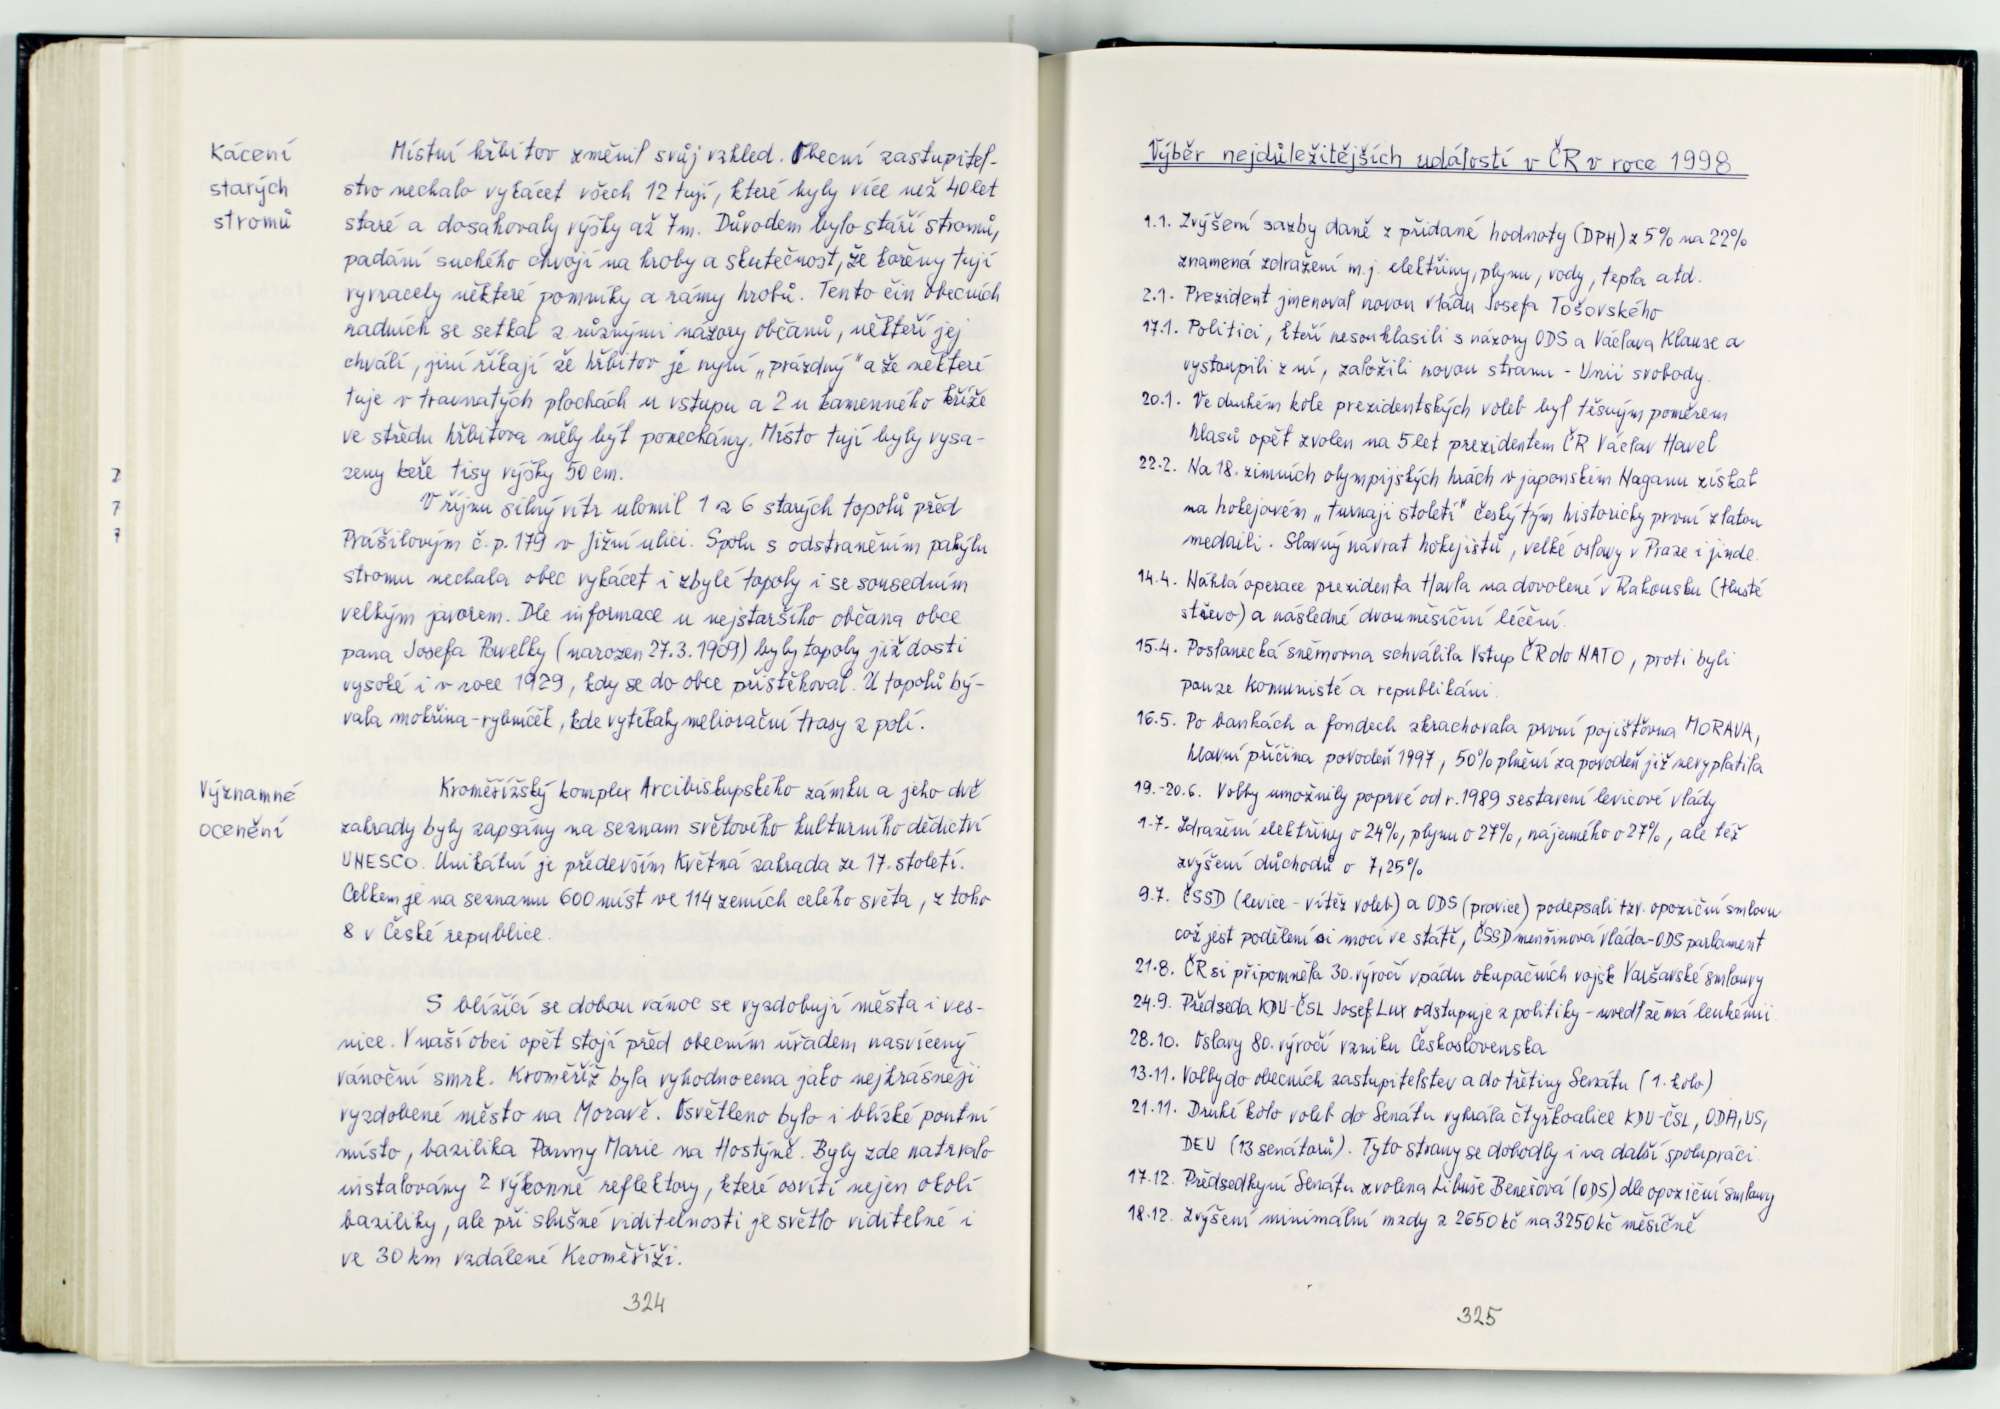 Kácení
starých
stromů
Místní hřbitov změnil svůj vzhled. Obecní zastupitel-
stvo nechalo vykácet všech 12 tují, které byly více než 40 let
staré a dosahovaly výšky až 7m. Důvodem bylo stáří stromů,
padání suchého chvojí na hroby a skutečnost, že kořeny tují
vyvracely některé pomníky a rámy hrobů. Tento čin obecních
radních se setkal z různými názory občanů, někteří jej
chválí, jiní říkají že hřbitov je nyní „prázdný" a že některé
tuje v travnatých plochách u vstupu a 2 u kamenného kříže
ve středu hřbitova měly být ponechány. Místo tují byly vysa-
zeny keře tisy výšky 50 cm.
V říjnu silný vítr ulomil 1 z 6 starých topolů před
Prášilovým č.p. 179 v Jižní ulici. Spolu s odstraněním pahýlu
stromu nechala obec vykácet i zbylé topoly i se sousedním
velkým javorem. Dle informace u nejstaršího občana obce
pana Josefa Pavelky (narozen 27.3.1909) byly topoly již dosti
vysoké i v roce 1929, kdy se do obce přistěhoval. U topolů bý-
vala mokřina-rybníček, kde vytékaly meliorační trasy z polí.
Významné
ocenění
Kroměřížský komplex Arcibiskupského zámku a jeho dvě
zahrady byly zapsány na seznam světového kulturního dědictví
UNESCO. Unikátní je především Květná zahrada ze 17. století.
Celkem je na seznamu 600 míst ve 114 zemích celého světa, z toho
8 v České republice.
S blížící se dobou vánoc se vyzdobují města i ves-
nice. V naší obci opět stojí před obecním úřadem nasvícený
vánoční smrk. Kroměříž byla vyhodnocena jako nejkrásněji
vyzdobené město na Moravě. Osvětleno bylo i blízké poutní
místo, bazilika Panny Marie na Hostýně. Byly zde natrvalo
instalovány 2 výkonné reflektory, které osvítí nejen okolí
baziliky, ale při slušné viditelnosti je světlo viditelné i
ve 30 km vzdálené Kroměříži.
324
Výběr nejdůležitějších událostí v ČR v roce 1998
1.1. Zvýšení sazby daně z přidané hodnoty (DPH) z 5% na 22%
znamená zdražení m.j. elektřiny, plynu, vody, tepla atd.
2.1. Prezident jmenoval novou vládu Josefa Tošovského
17.1. Politici, kteří nesouhlasili s názory ODS a Václava Klause a
vystoupili z ní, založili novou stranu - Unii svobody.
20.1. Ve druhém kole prezidentských voleb byl těsným poměrem
hlasů opět zvolen na 5 let prezidentem ČR Václav Havel
22.2. Na 18. zimních olympijských hrách v japonském Naganu získal
na hokejovém „turnaji století" český tým historicky první zlatou
medaili. Slavný návrat hokejistů, velké oslavy v Praze i jinde.
14.4. Náhlá operace prezidenta Havla na dovolené v Rakousku (tlusté
střevo) a následné dvouměsíční léčení.
15.4. Poslanecká sněmovna schválila vstup ČR do NATO, proti byli
pouze komunisté a republikáni.
16.5. Po bankách a fondech zkrachovala první pojišťovna MORAVA,
hlavní příčina povodeň 1997, 50% plnění za povodeň již nevyplatila
19.-20.6. Volby umožnily poprvé od r. 1989 sestavení levicové vlády
1.7. Zdražení elektřiny o 24%, plynu o 27%, nájemného o 27%, ale též
zvýšení důchodů o 7,25%
9.7. ČSSD (levice - vítěz voleb) a ODS (pravice) podepsali tzv. opoziční smlouvu
což jest podělení si mocí ve státě, ČSSD menšinová vláda-ODS parlament
21.8. ČR si připomněla 30. výročí vpádu okupačních vojsk Varšavské smlouvy
24.9. Předseda KDU-ČSL Josef Lux odstupuje z politiky - uvedl že má leukémii.
28.10. Oslavy 80. výročí vzniku Československa
13.11. Volby do obecních zastupitelstev a do třetiny Senátu (1. kolo)
21.11. Druhé kolo voleb do Senátu vyhrála čtyřkoalice KDU-ČSL, ODA, US,
DEU (13 senátorů). Tyto strany se dohodly i na další spolupráci.
17.12. Předsedkyní Senátu zvolena Libuše Benešová (ODS) dle opoziční smlouvy
18.12. Zvýšení minimální mzdy z 2650 kč na 3250 kč měsíčně
325